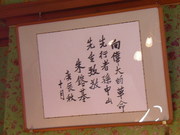 向偉大的革命
先行者孫中山
先生致敬
朱鎔基
十月